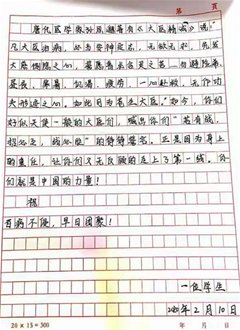 第　页
唐代医学家孙思邈著有《大医精诚》说,"
凡大医治病,必当安神定志,无欲无求,先发
大慈恻隐之心,誓愿普救含灵之苦,勿避险巇、
昼夜、寒暑、饥渴、疲劳,一心赴救,无作功
夫形迹之心。如此可为苍生大医。"如今,你们
好似天使一般的大医们,喊出你们"若有战,
召必之,战必胜"的铮铮誓言。正是因为身上
的责任,让你们义无反顾的走上了第一线,你
们就是中国的力量!
祝
百病不侵,早日团聚!
一位学生
2020年2月10日
20×15=300
年　月　日